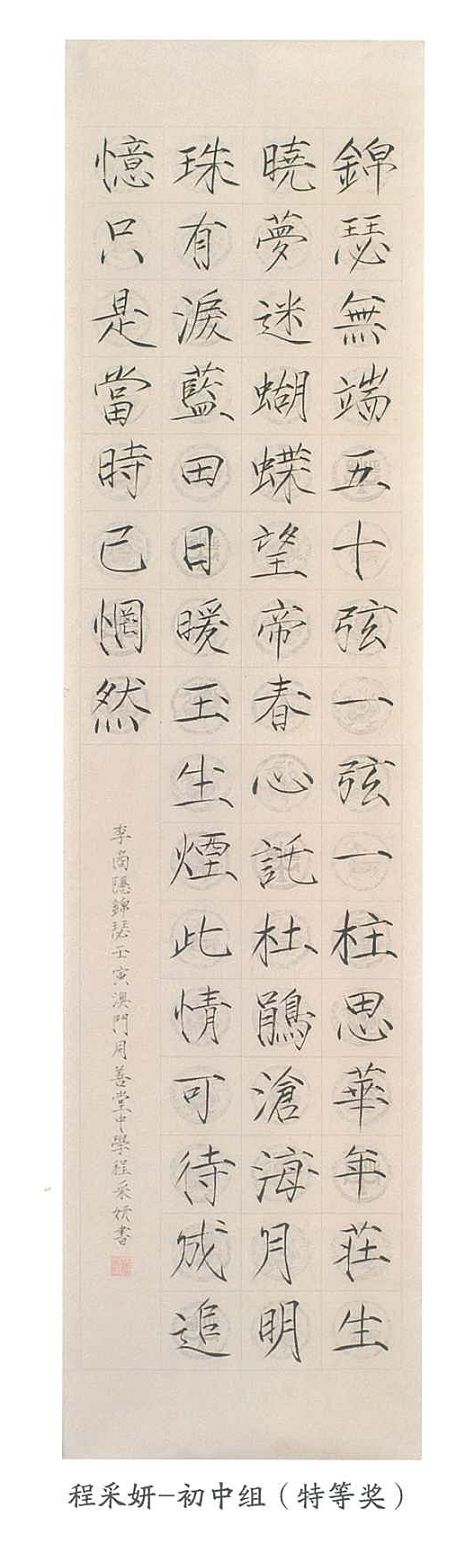 錦瑟無端五十弦一弦一柱思華年莊生
曉夢迷蝴蝶望帝春心託杜鵑滄海月明
珠有淚藍田日暖玉生煙此情可待成追
憶只是當時已惘然
李商隱錦瑟壬寅澳門月善堂中學程采妍書
程采妍-初中组（特等奖）